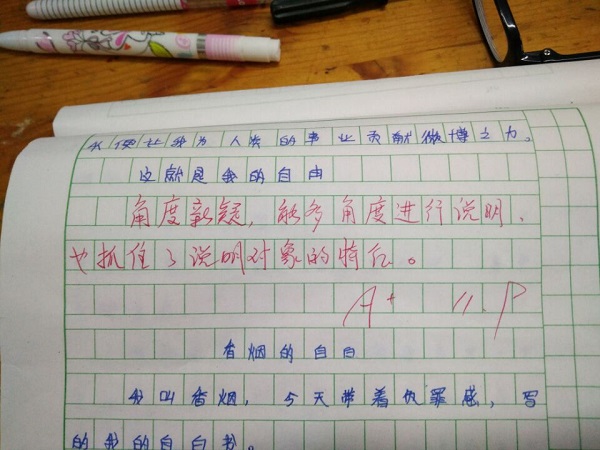 以便让我为人类的书业贡献微博之力。
这就是我的自由
角度新疑,能多角度进行说明,
也抓住了说明对象的特征。
A+
香烟的自白
我叫香烟,今天带着罪感,写
的我的自白书。